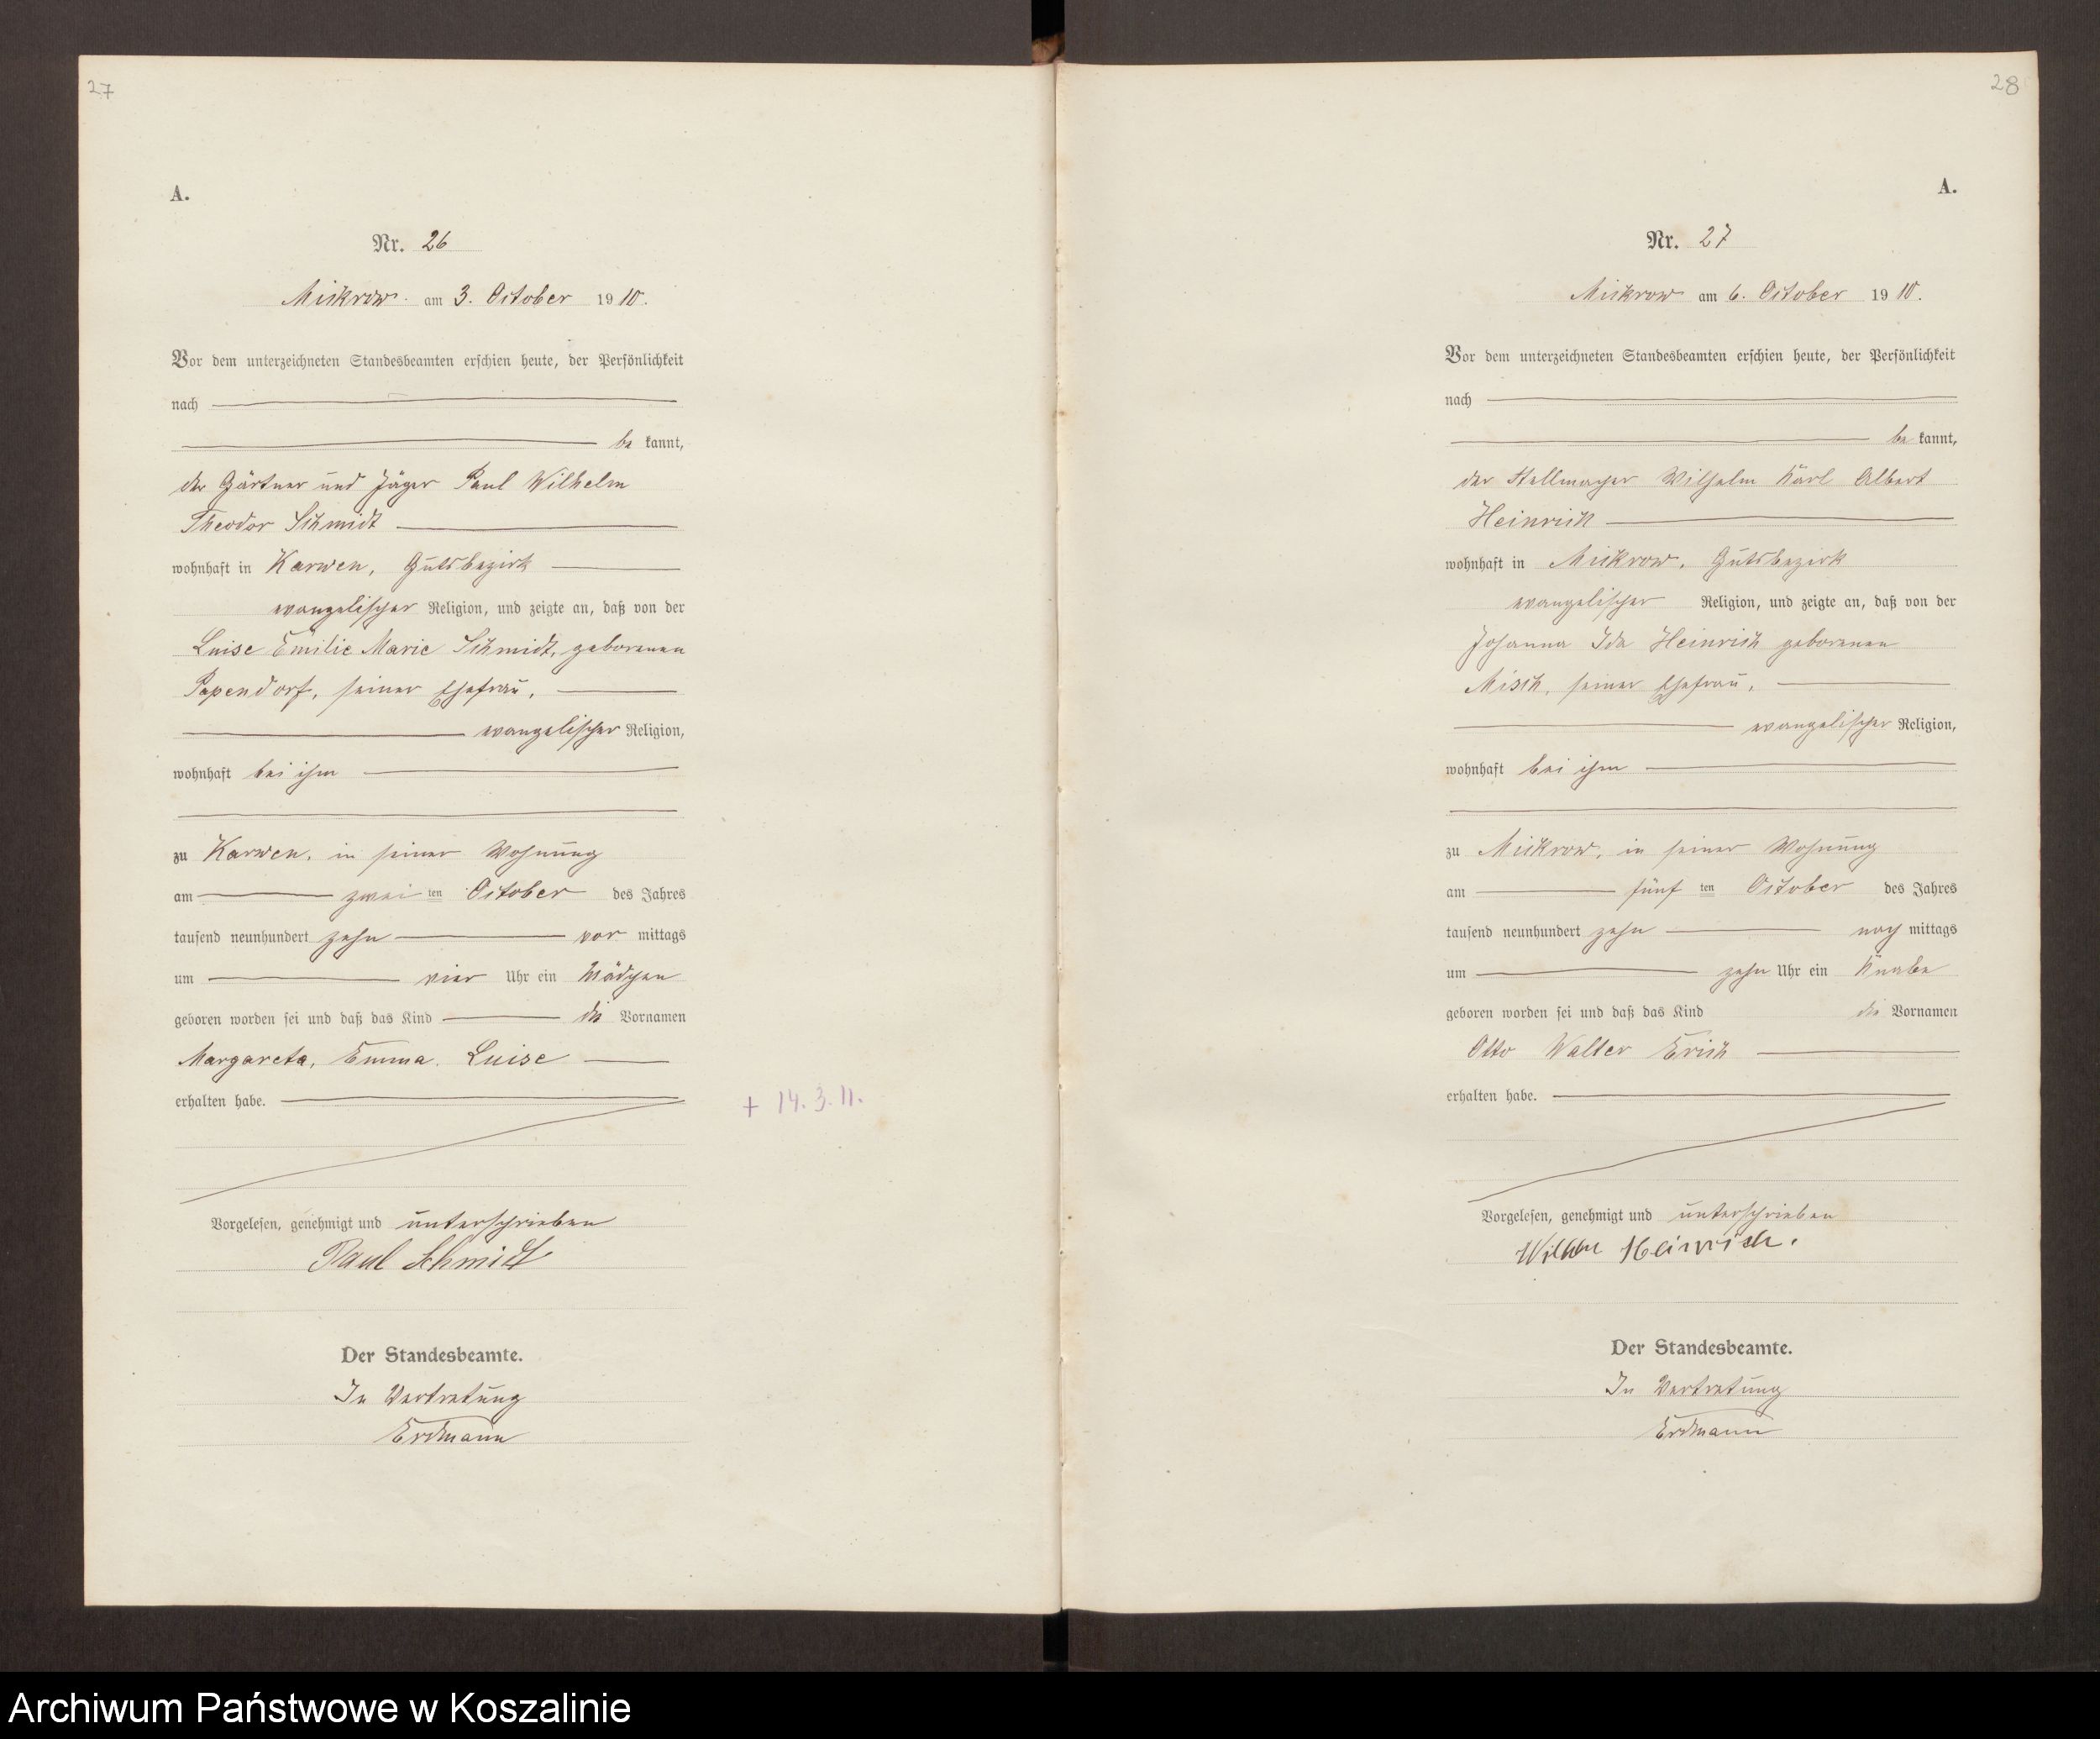 27
A.
Nr. 26
Mickrow am 3. October 1910.
Vor dem unterzeichneten Standesbeamten erschien heute, der Persönlichkeit
nach
be kannt,
der Gärtner und Jäger Paul Wilhelm
Theodor Schmidt
wohnhaft in Karwen, Gutsbezirk
evangelischer Religion, und zeigte an, daß von der
Luise Emilie Marie Schmidt, geborenen
Papendorf, seiner Ehefrau,
evangelischer Religion,
wohnhaft bei ihm
zu Karwen, in seiner Wohnung
am zwei ten October des Jahres
tausend neunhundert zehn vor mittags
um vier Uhr ein Mädchen
geboren worden sei und daß das Kind die Vornamen
Margareta, Emma. Luise
erhalten habe.
+ 14.3.11.
Vorgelesen, genehmigt und unterschrieben
Paul Schmidt
Der Standesbeamte.
In Vertretung
Erdmann
28
A.
Nr. 27
Mickrow am 6. October 1910.
Vor dem unterzeichneten Standesbeamten erschien heute, der Persönlichkeit
nach
be kannt,
der Stellmacher Wilhelm Karl Albert
Heinrich
wohnhaft in Mickrow, Gutsbezirk
evangelischer Religion, und zeigte an, daß von der
Johanna Ida Heinrich geborenen
Misch, seiner Ehefrau,
evangelischer Religion,
wohnhaft bei ihm
zu Mickrow, in seiner Wohnung
am fünf ten October des Jahres
tausend neunhundert zehn nach mittags
um zehn Uhr ein Knabe
geboren worden sei und daß das Kind die Vornamen
Otto Walter Erich
erhalten habe.
Vorgelesen, genehmigt und unterschrieben
Heinrich.
Der Standesbeamte.
In Vertretung
Erdmann
Archiwum Państwowe w Koszalinie